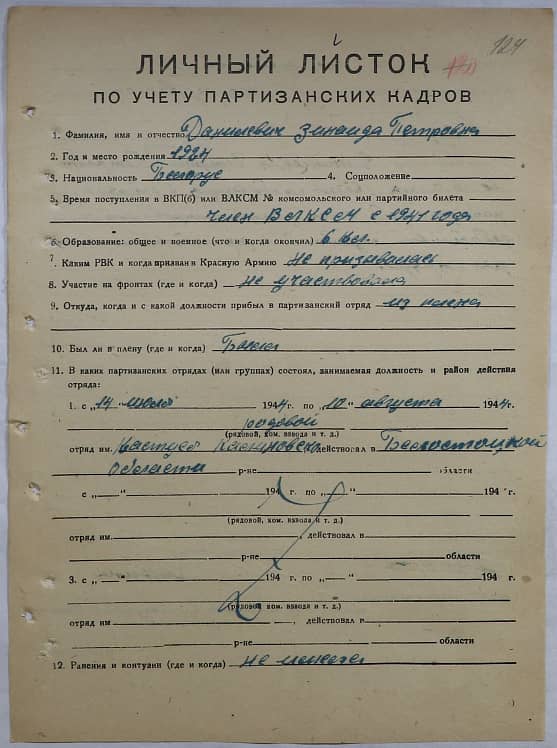 124
ЛИЧНЫЙ ЛИСТОК
ПО УЧЕТУ ПАРТИЗАНСКИХ КАДРОВ
1. Фамилия, имя и отчество Данилевич Зинаида Петровна
2. Год и место рождения 1924
3. Национальность Белорус 4. Соцположение
5. Время поступления в ВКП(б) или ВЛКСМ № комсомольского или партийного билета
член ВЛКСМ с 1941 года
6. Образование: общее и военное (что и когда окончил) 6 кл.
7. Каким РВК и когда призван в Красную Армию Не призывалась
8. Участие на фронтах (где и когда) не участвовала
9. Откуда, когда и с какой должности прибыл в партизанский отряд из плена
10. Был ли в плену (где и когда) Была
11. В каких партизанских отрядах (или группах) состоял, занимаемая должность и район действия
отряда:
1. с „14" 1944 г. по „10" августа 1944 г.
рядовой
(рядовой, ком. взвода и т. д.)
отряд им. Кастуся Калиновского действовал в Белостоцкой
области р-не области
с „ — " 194 г. по „ — " 194 г.
(рядовой, ком. взвода и т. д.)
отряд им. , действовал в
р-не области
3. с „ — " 194 г. по „ — " 194 г.
(рядовой, ком. взвода и т. д.)
отряд им , действовал в
р-не области
12. Ранения и контузии (где и когда) не имела